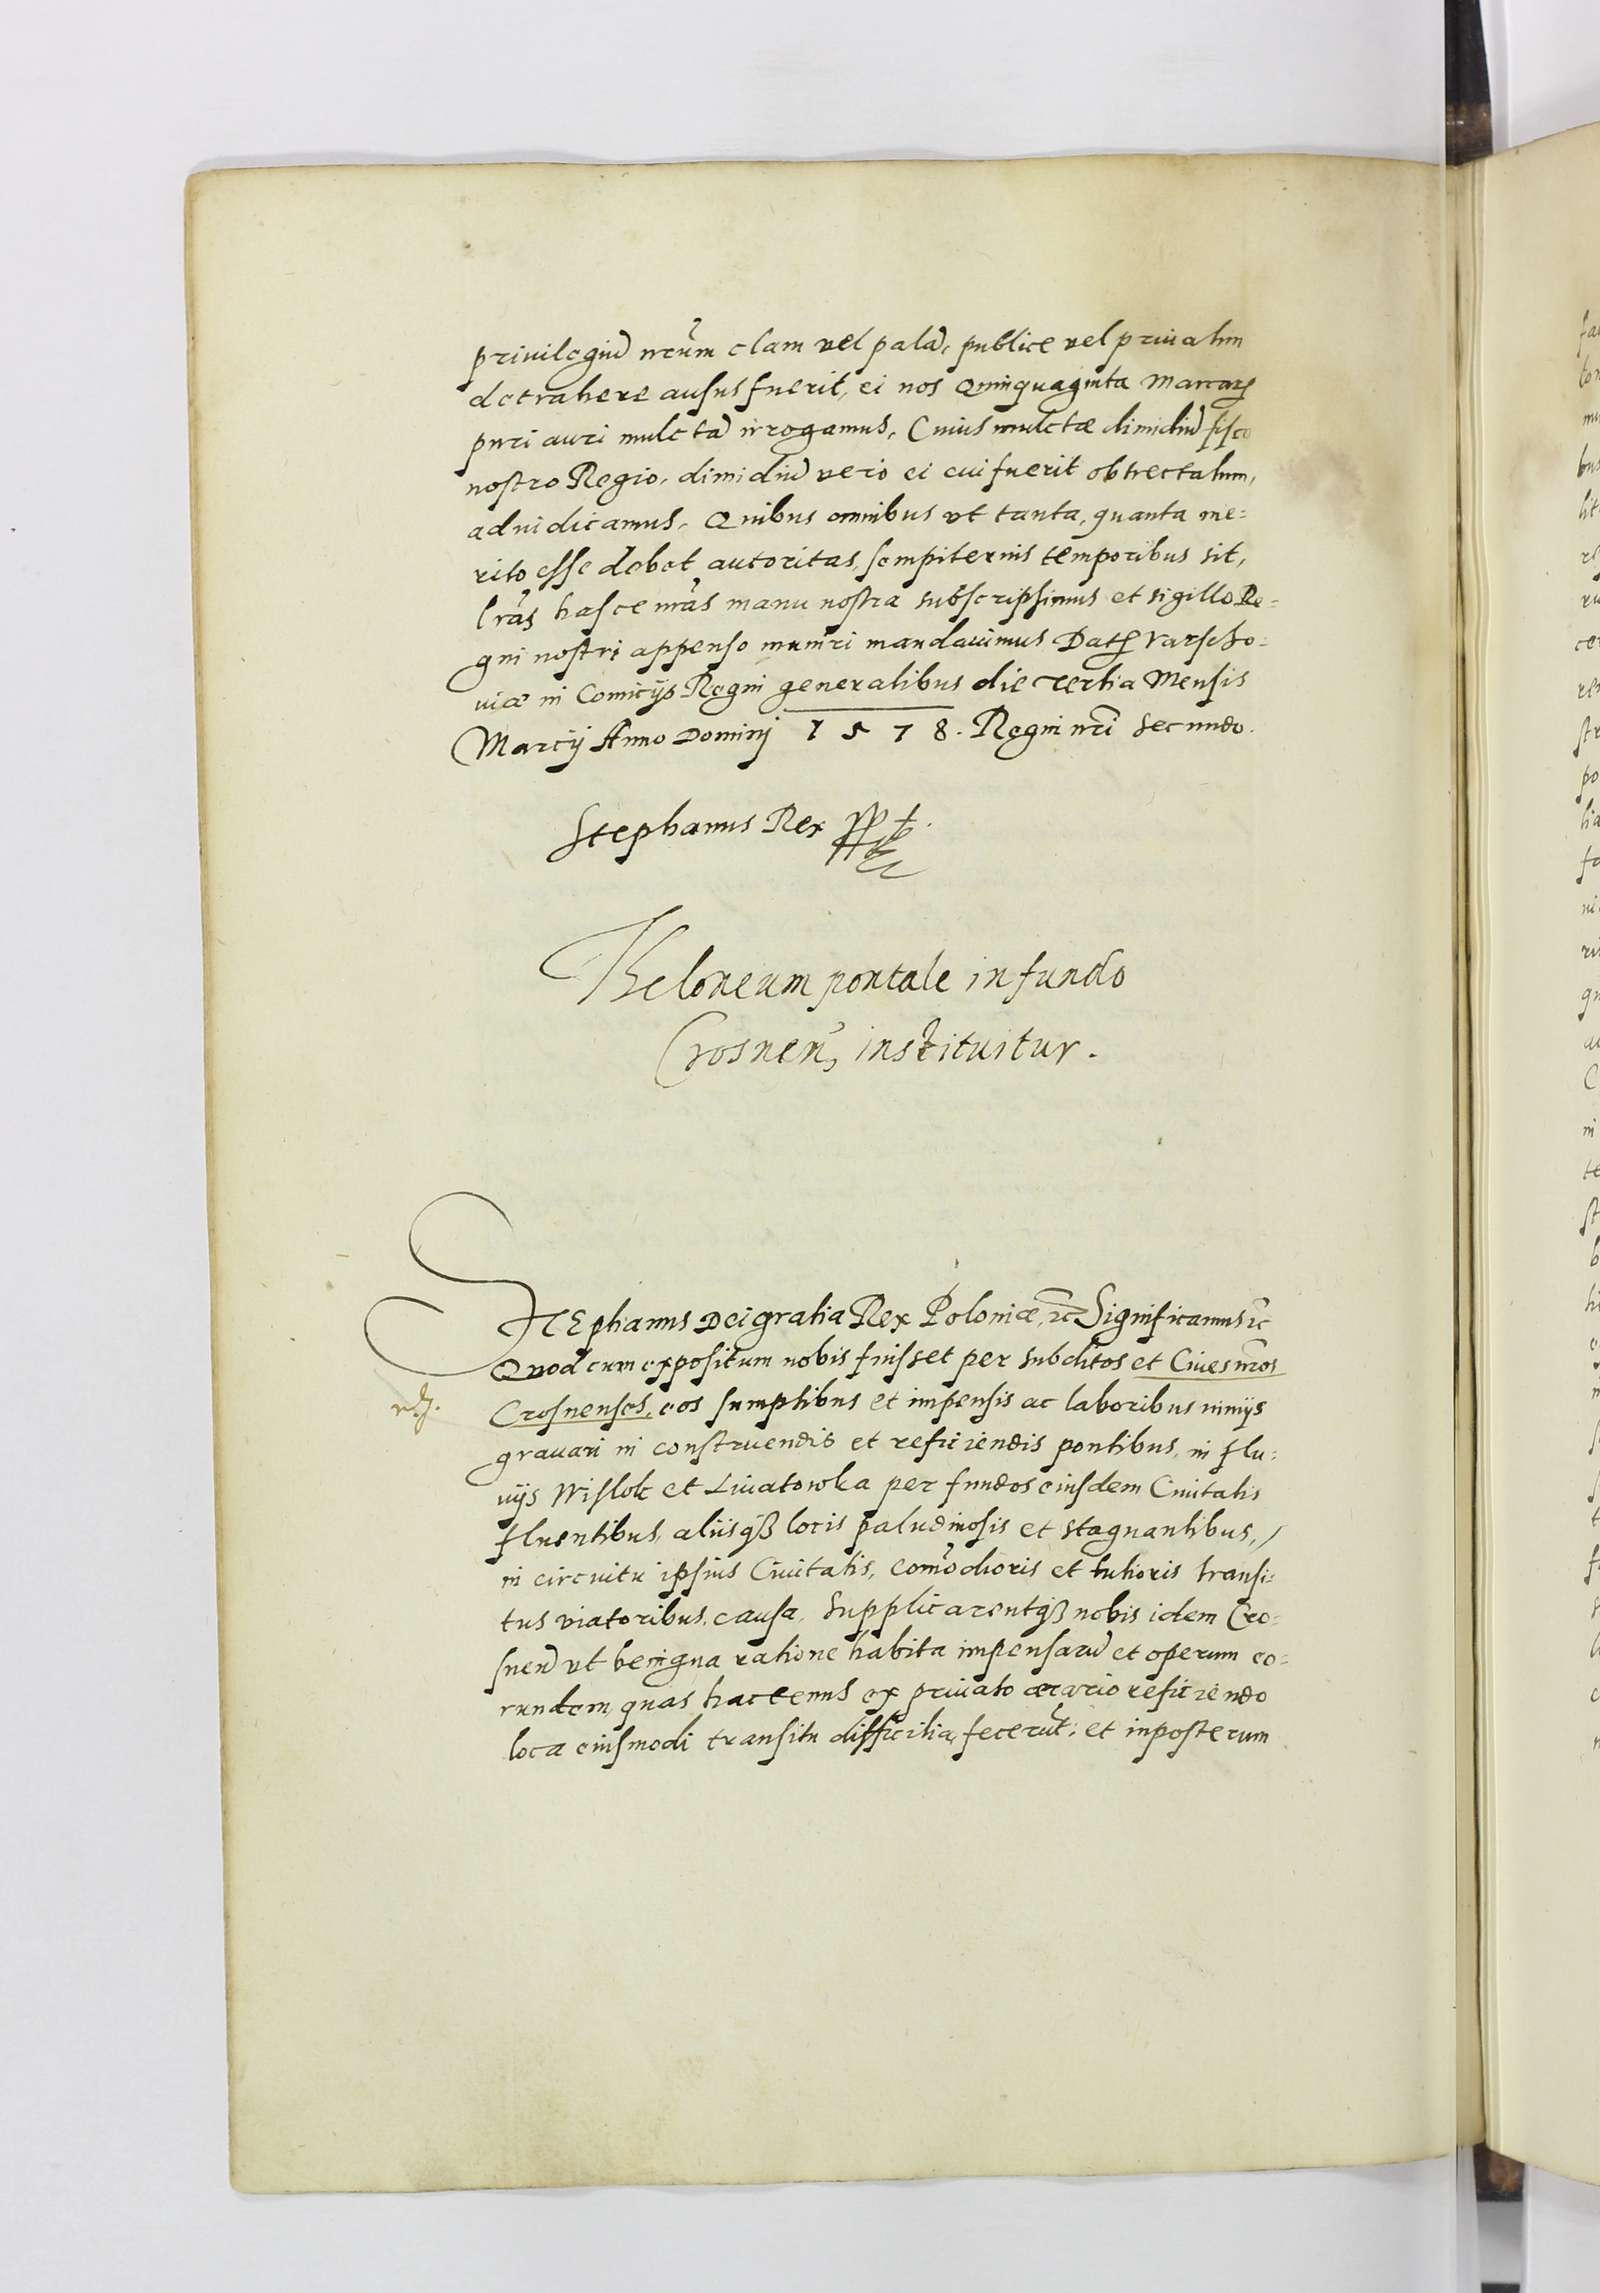 privilegiũ nrũm clam vel palã, publice vel privatim
detrahere ausus fuerit, ei nos Quinquaginta Marcarꝝ
puri auri mulctã irrogamus, Cuius mulctæ dimidiũ fisco
nostro Regio, dimidiũ vero ei cui fuerit obtrectatum,
adiudicamus, Quibus omnibus vt tanta, quanta me=
rito esse debet autoritas, sempiternis temporibus sit,
lrãs hasce nrãs manu nostra subscripsimus et sigillo Re=
gni nostri appenso muniri mandauimus Datꝭ Varscho=
uiæ in Comitijs Regni generalibus die tertia Mensis
Marcij Anno Dominj 1578. Regni nrĩ secundo.
Stephanus Rex
Theloneum pontale in fundo
Crosnen̄, instituitur.
STEphanus Dei gratia Rex Poloniæ, ꝛc̃ Significamus ꝛc̃
Quod cum expositum nobis fuisset per subditos et Ciues nr̃os
Crosnenses, eos sumptibus et impensis ac laboribus nimijs
grauari in construendis et reficiendis pontibus, in flu=
uijs Wislok et Liuatowka per fundos eiusdem Ciuitatis
fluentibus, aliisqꝫ locis paludinosis et stagnantibus, /
in circuitu ipsius Ciuitatis, com̃odioris et tutioris transi=
tus viatoribus, causa, Supplicarentqꝫ nobis idem Cro=
snen̄ vt benigna ratione habita impensarũ et operum eo=
rundem, quas hactenus ex priuato ærario reficiendo
loca eiusmodi transitu difficilia, fecerũt, et inposterum